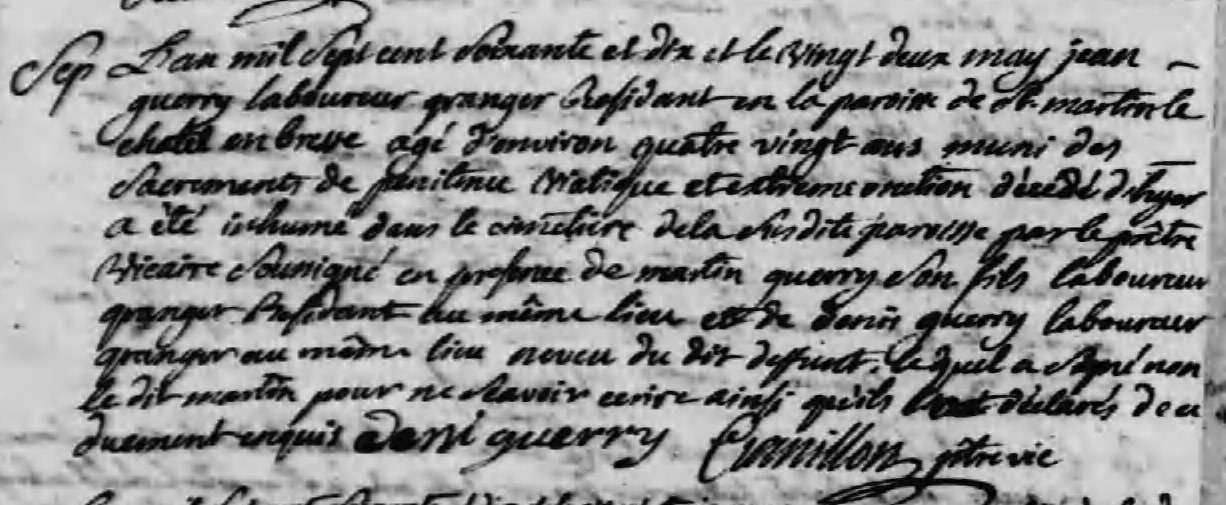 Sep L'an mil sept cent soixante et dix et le vingt deux may jean
guerry laboureur granger Residant en la paroisse de st. martin le
chatel en bresse agé d'environ quatre vingt ans muni des
sacrements de penitence viatique et extreme onction décedé d'hyer
a été inhumé dans le cimetiere de la susdite paroisse par le prêtre
vicaire soussigné en presence de martin guerry son fils laboureur
granger Residant au même lieu et de denis guerry laboureur
granger au même lieu neveu du dit deffunt. lequel a signé non
le dit martin pour ne scavoir ecrire ainsi qu'ils l'ont déclarés de ce
duement enquis deni guerry ptre vic